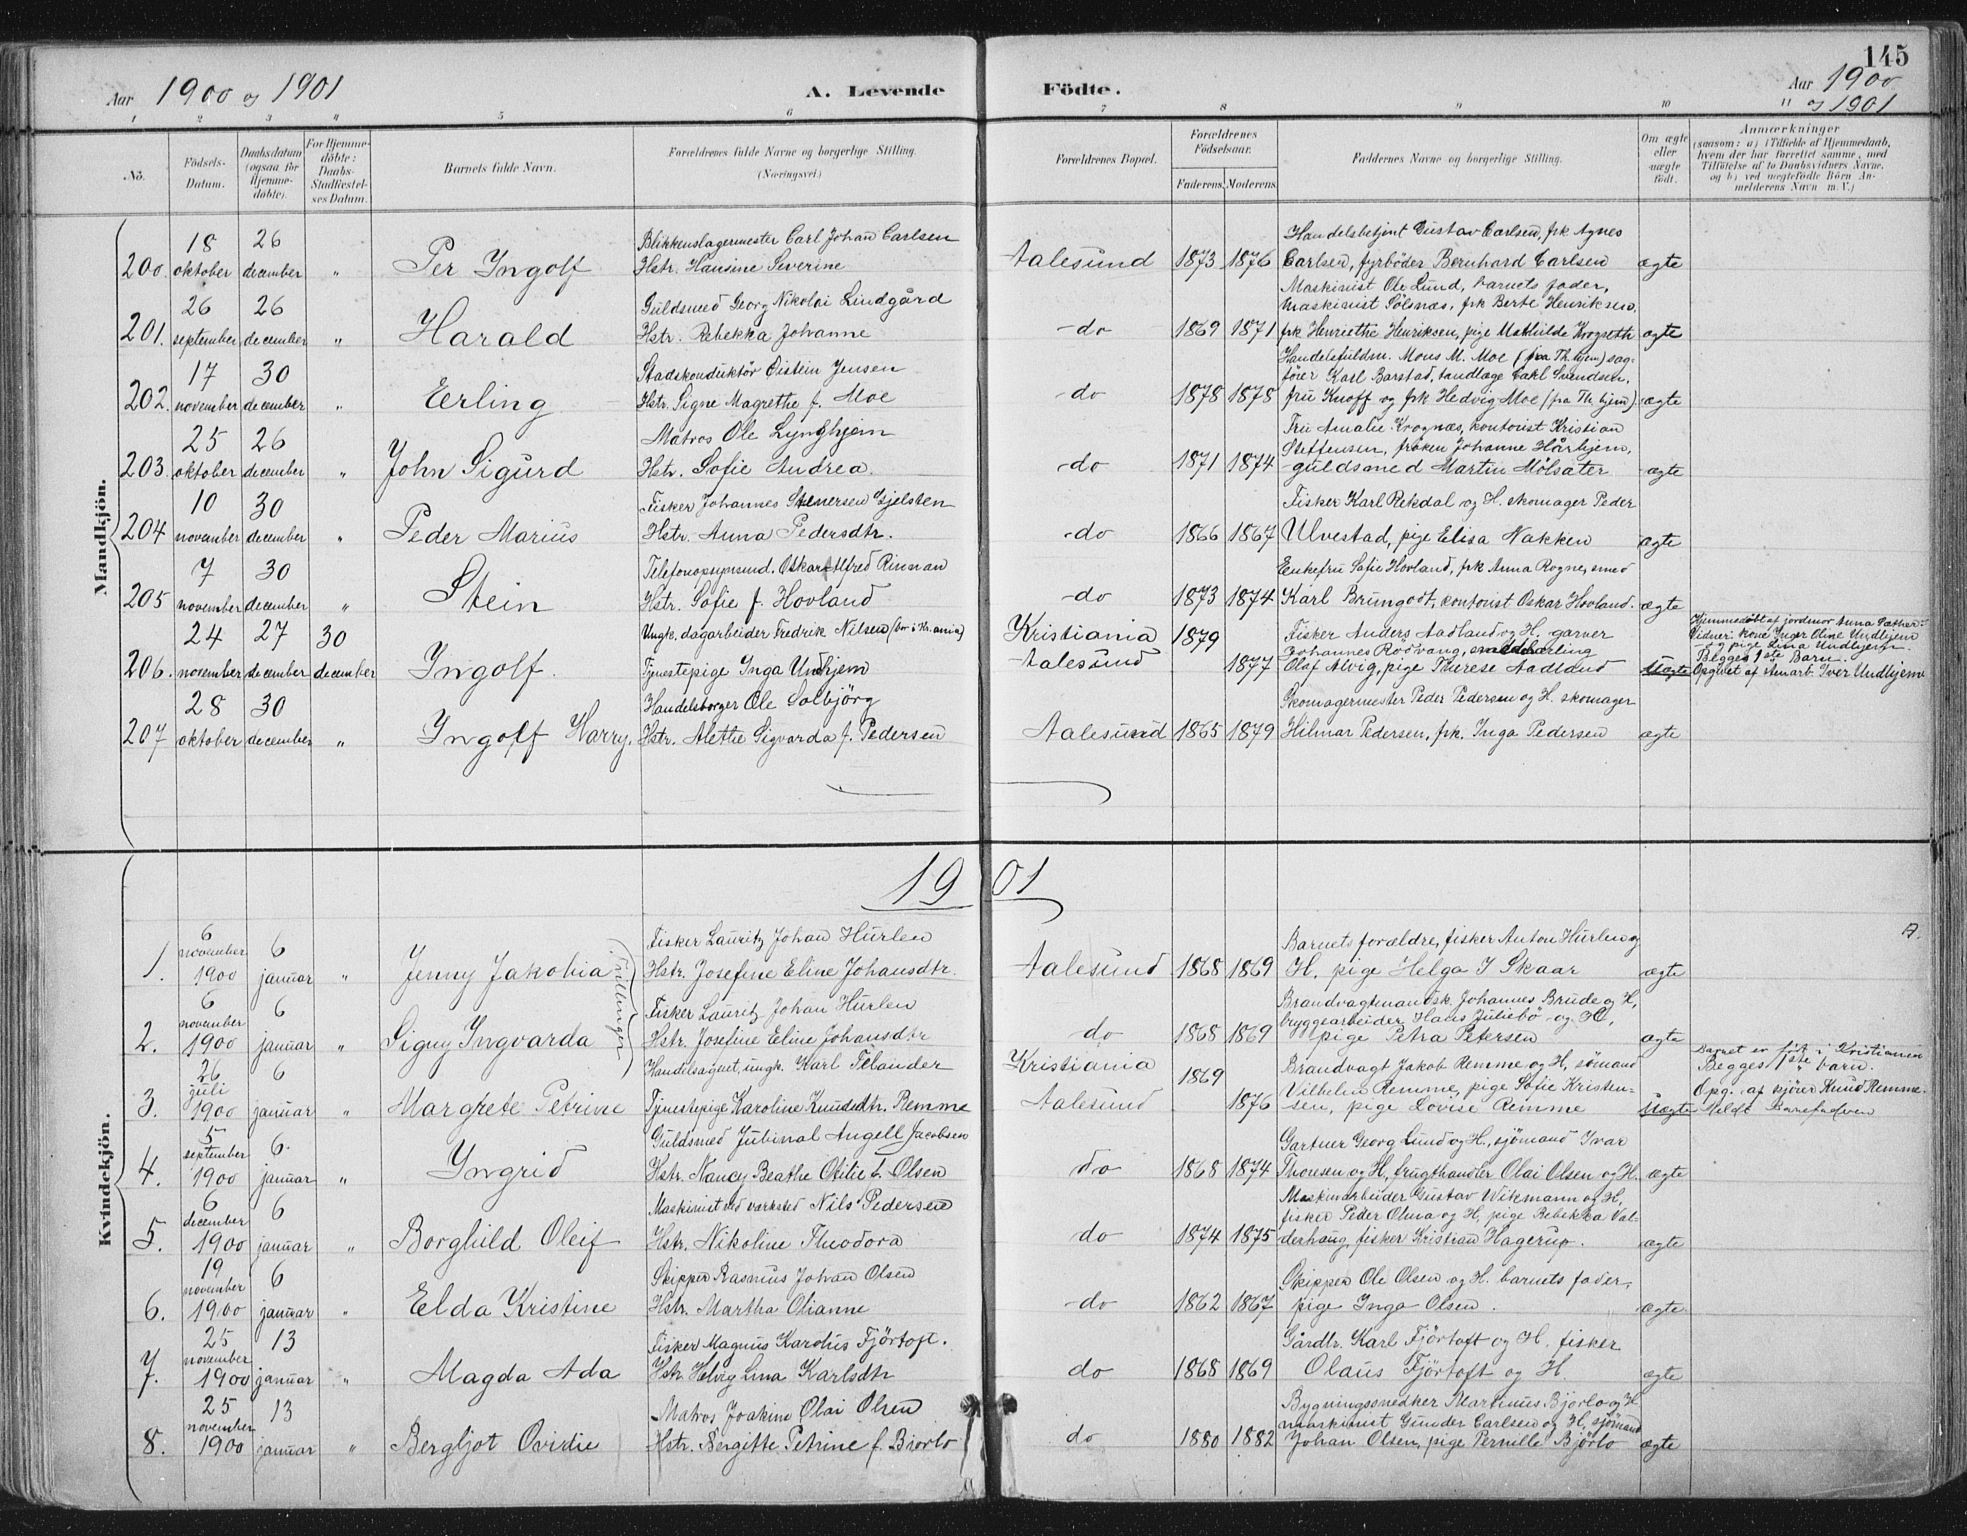 145
Aar 1900 og 1901
A. Levende
Födte.
Aar 1900
og 1901
1 2 3 4 5 6 7 8 9 10 11
No.
Födsels-
Datum.
Daabsdatum
(ogsaa for
Hjemme-
döbte).
For Hjemme-
döbte:
Daabs-
Stadfæstel-
ses Datum.
Barnets fulde Navn.
Forældrenes fulde Navne og borgerlige Stilling.
(Næringsvei.)
Forældrenes Bopæl.
Forældrenes
Födselsaar.
Faderens. Moderens.
Faddernes Navne og borgerlige Stilling.
Om ægte
eller
uægte
födt.
Anmærkninger
(saasom: a) i Tilfælde af Hjemmedaab,
hvem der har forrettet samme, med
Tilföielse af to Daabsvidners Navne,
og b) ved uægtefödte Börn An-
melderens Navn m. V.)
Mandkjön.
18 26 Blikkenslagermester Carl Johan Carlsen Handelsbetjent Gustav Carlsen, frk Agnes
200. oktober december " Per Ingolf Hstr. Hansine Severine Aalesund 1873 1876 Carlsen, fyrböder Bernhard Carlsen ægte
Maskinist Ole Lund, barnets fader,
26 26 Guldsmed Georg Nikolai Lindgård maskinist Sölsnæs, frk Berte Henriksen,
201. september december " Harald Hstr. Rebekka Johanne do 1869 1871 frk Henriethe Henriksen, pige Mathilde Krogseth ægte
17 30 Stadskonduktör Öistein Jensen Handelsfuldm. Mons M. Moe (fra Th.hjem) sag-
förer Karl Barstad, tandlæge Carl Svendsen,
202. november december " Erling Hstr. Signe Magrethe f. Moe do 1878 1878 fru Knoff og frk Hedvig Moe (fra Th.hjem). ægte
25 26 Matros Ole Lynghjem Fru Amalie Krognæs, kontorist Kristian
Steffensen, fröken Johanne Hårhjem,
203. oktober december " John Sigurd Hstr. Sofie Andrea. do 1871 1874 guldsmed Martin Mölsäter ægte
10 30 Fisker Johannes Stenersen Gjelsten Fisker Karl Rekdal og H. skomager Peder
204 november december " Peder Marius Hstr. Anna Pedersdtr. do 1866 1867 Ulvestad, pige Elisa Nakken ægte
7 30 Telefonopsynsmd. Oskar Alfred Rinnan Enkefru Sofie Hovland, frk Anna Rogne, smed
205 november december " Stein Hstr. Sofie f. Hovland do 1873 1874 Karl Brungodt, kontorist Oskar Hovland. ægte
24 27 30 Ungk. dagarbeider Fredrik Nilsen (bor i Kr.ania) Kristiania 1879 Fisker Anders Aadland og H. garver
Johannes Rödvang,
206. november december december Ingolf. Tjenestepige Inga Undhjem Aalesund 1877 Olaf Alvig, pige Therese Aadland Uægte
Hjemmedöbt af jordmor Anna Sæther:
Vidner: kone Inger Oline Undhjem
og pige Lina Undhjem
Begges 1ste Barn.
Opgivet af Amarb. Iver Undhjem
28 30 Handelsborger Ole Solbjörg Skomagermester Peder Pedersen og H. skomager
207 oktober december " Ingolf Harry. Hstr. Alette Sigvarda f. Pedersen Aalesund 1865 1879 Hilmar Pedersen, frk. Inga Pedersen ægte
1901
Kvindekjön.
6 november 6 Fisker Lauritz Johan Hurlen Barnets forældre, fisker Anton Hurlen og
1. 1900 januar " Jenny Jakobia Hstr. Josefine Eline Johansdtr. Aalesund 1868 1869 H. pige Helga I Skaar ægte
Tvillinger
6 november 6 Fisker Lauritz Johan Hurlen Brandvagtmandsk. Johannes Brude og H,
bryggearbeider Hans Juliebö og H,
2. 1900 januar " Signy Ingvarda Hstr. Josefine Eline Johansdtr do 1868 1869 pige Petra Petersen ægte
26 juli 6 Handelsagent, ungk. Karl Telander Kristiania 1869 Brandvagt Jakob Remme og H, sömand
Vilhelm Remme, pige Sofie Kristen-
3. 1900 januar " Margrete Petrine Tjenestepige Karoline Knudsdtr. Remme Aalesund 1876 sen, pige Lovise Remme Uægte
Barnet er föt i Kristiania
Begges 1ste barn.
Opg. af kjörer Knud Remme.
Meldt Barnefaderen
5 september 6 Guldsmed Jubinal Angell Jacobsen Gartner Georg Lund og H., sjömand Ivar
4. 1900 januar " Ingrid Hstr. Nancy Beathe Otilie f. Olsen do 1868 1874 Thonsen og H, frugthandler Olai Olsen og H. ægte
6 december 6 Maskinist ved værksted Nils Pedersen Maskinarbeider Gustav Witzmann og H,
fisker Peder Olma og H, pige Rebekka Val-
5. 1900 januar " Borghild Oleif Hstr. Nikoline Theodora do 1874 1875 derhaug, fisker Kristian Hagerup. ægte
19 november 6 Skipper Rasmus Johan Olsen Skipper Ole Olsen og H. barnets fader,
6. 1900 januar " Elda Kristine Hstr. Martha Olianne do 1862 1867 pige Inga Olsen. ægte
25 november 13 Fisker Magnus Karolus Fjörtoft. Gårdbr. Karl Fjörtoft og H. fisker
7. 1900 januar " Magda Ada Hstr. Helvig Lina Karlsdtr do 1868 1869 Olaus Fjörtoft og H. ægte
25 november 13 Matros Joakim Olai Olsen Bygningssnedker Martinus Bjorlo og H
maskinist Gunder Carlsen og H, sjömand
8. 1900 januar " Bergljot Ovidie Hstr. Bergitte Petrine f. Biorlo do 1880 1882 Johan Olsen, pige Pernille Bjorlo ægte